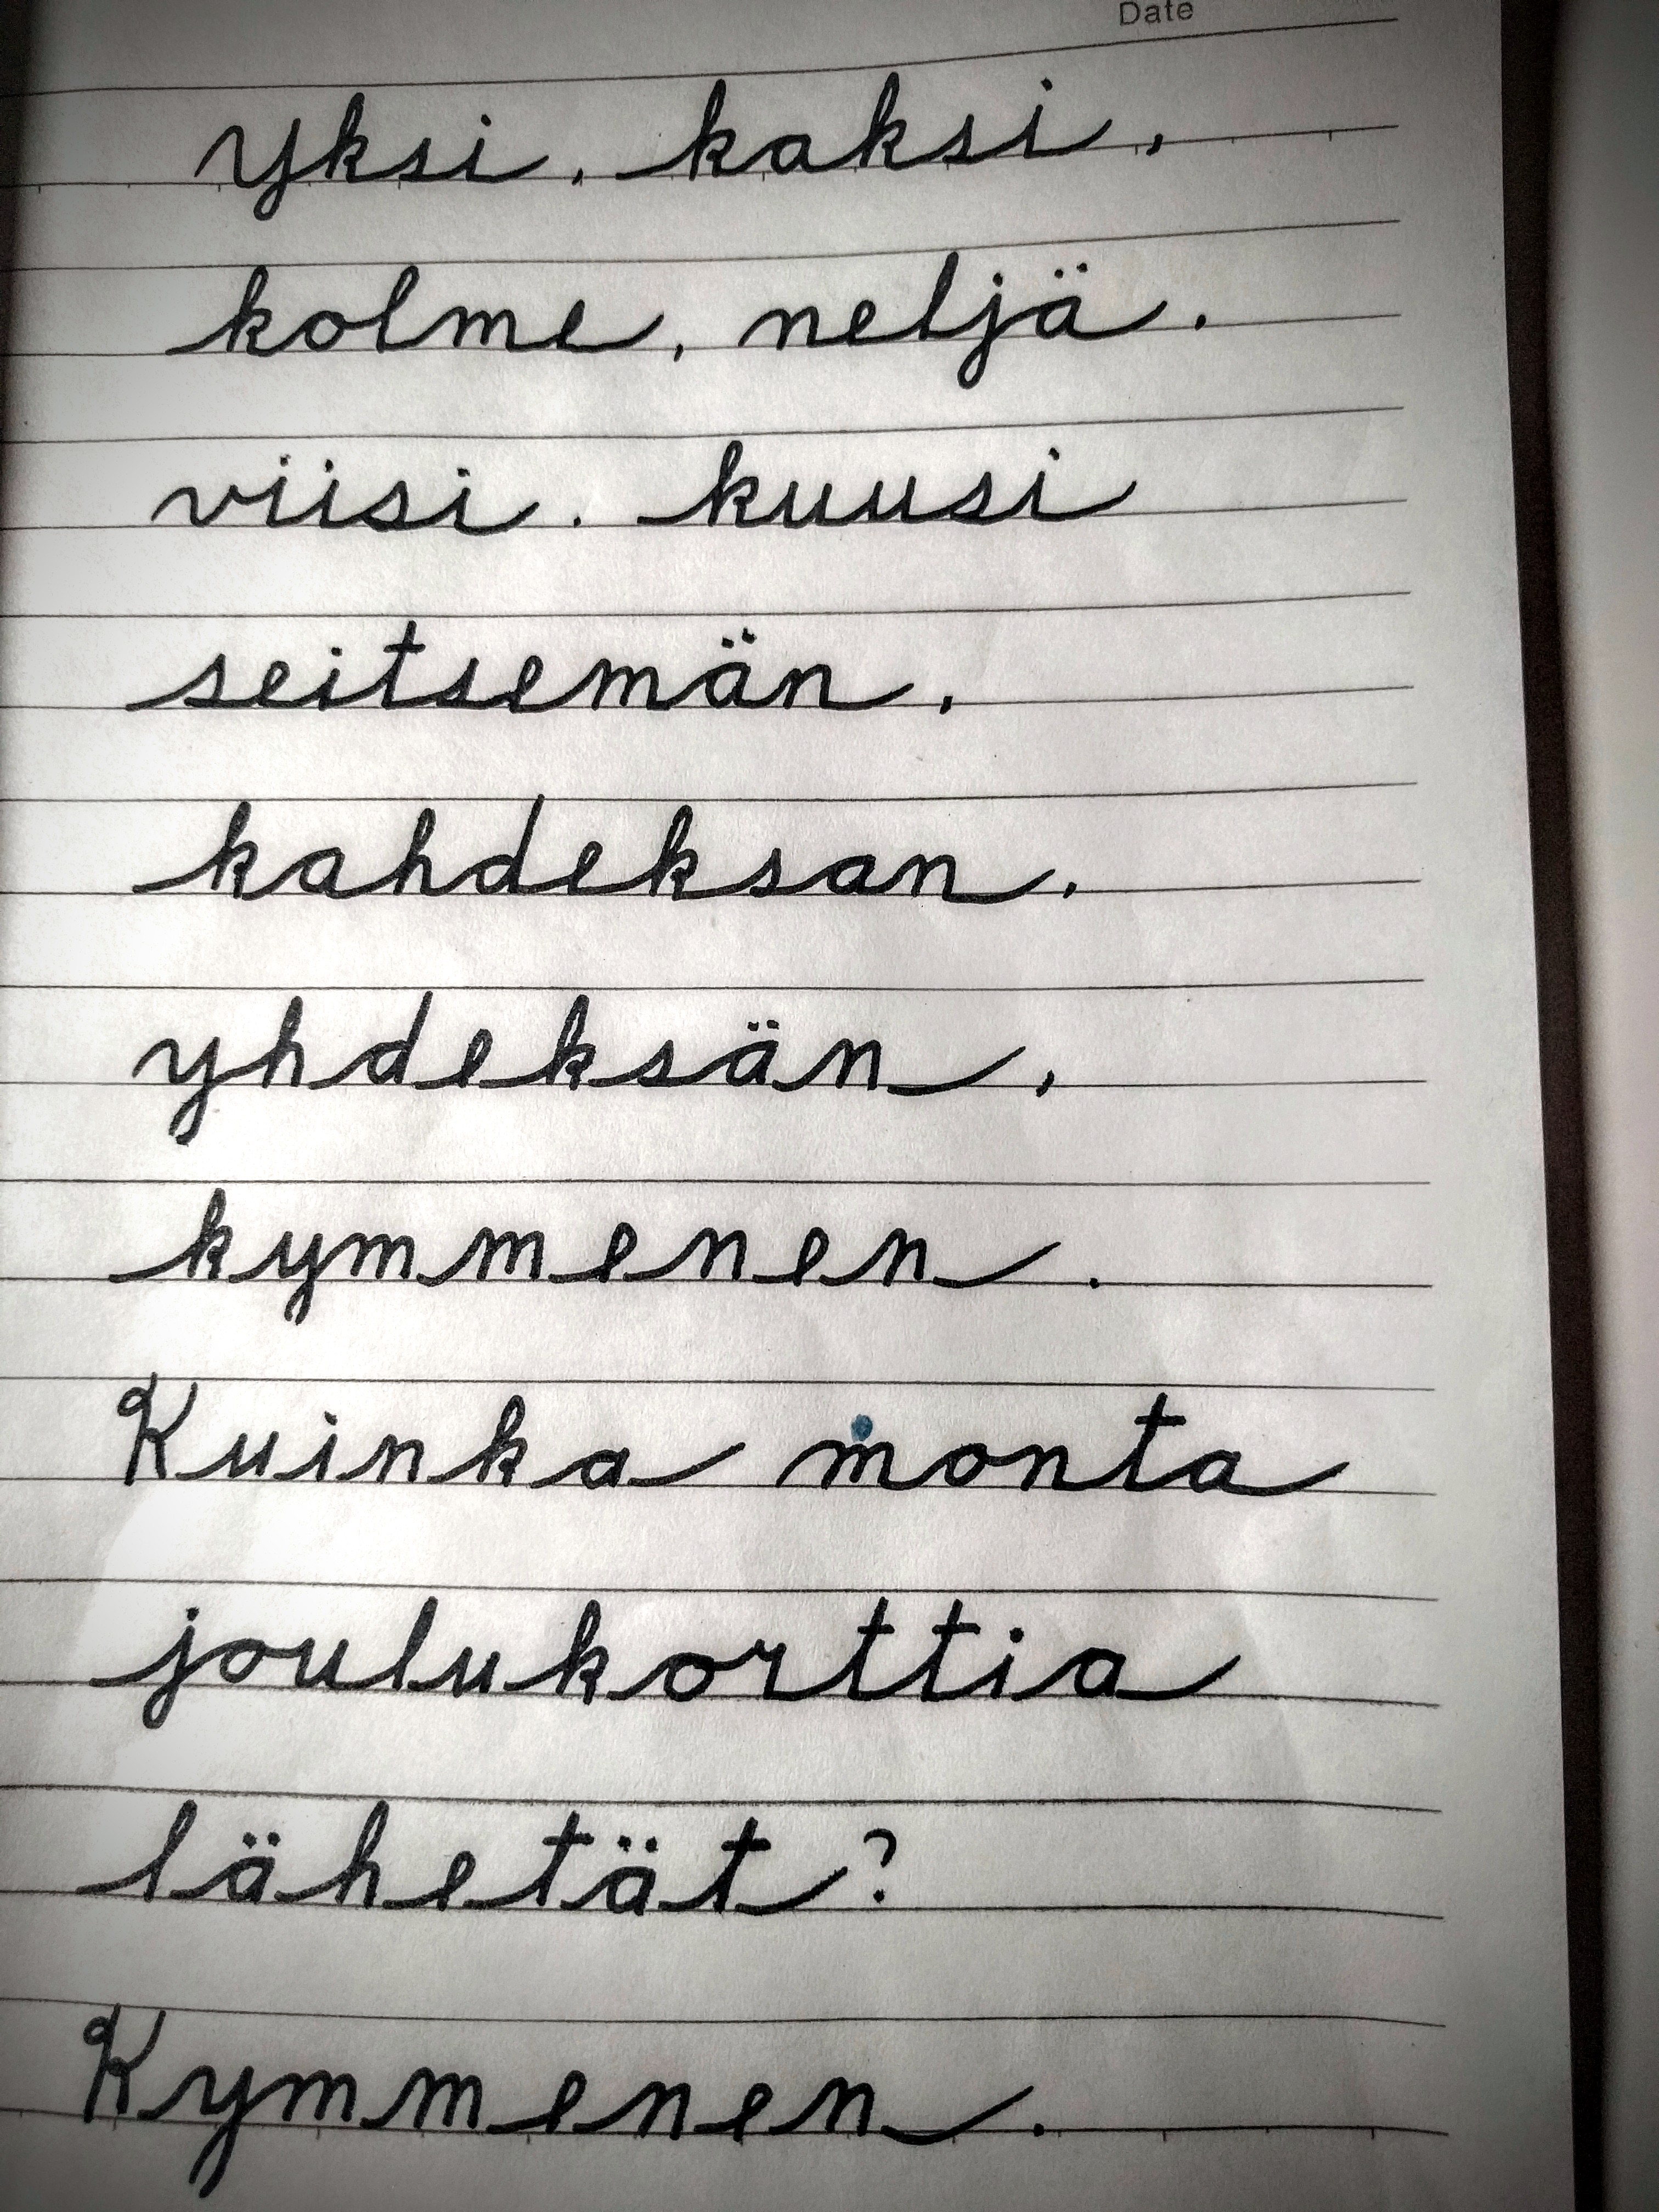 Date
yksi, kaksi,
kolme, neljä,
viisi, kuusi
seitsemän,
kahdeksan,
yhdeksän,
kymmenen.
Kuinka monta
joulukorttia
lähetät?
Kymmenen.